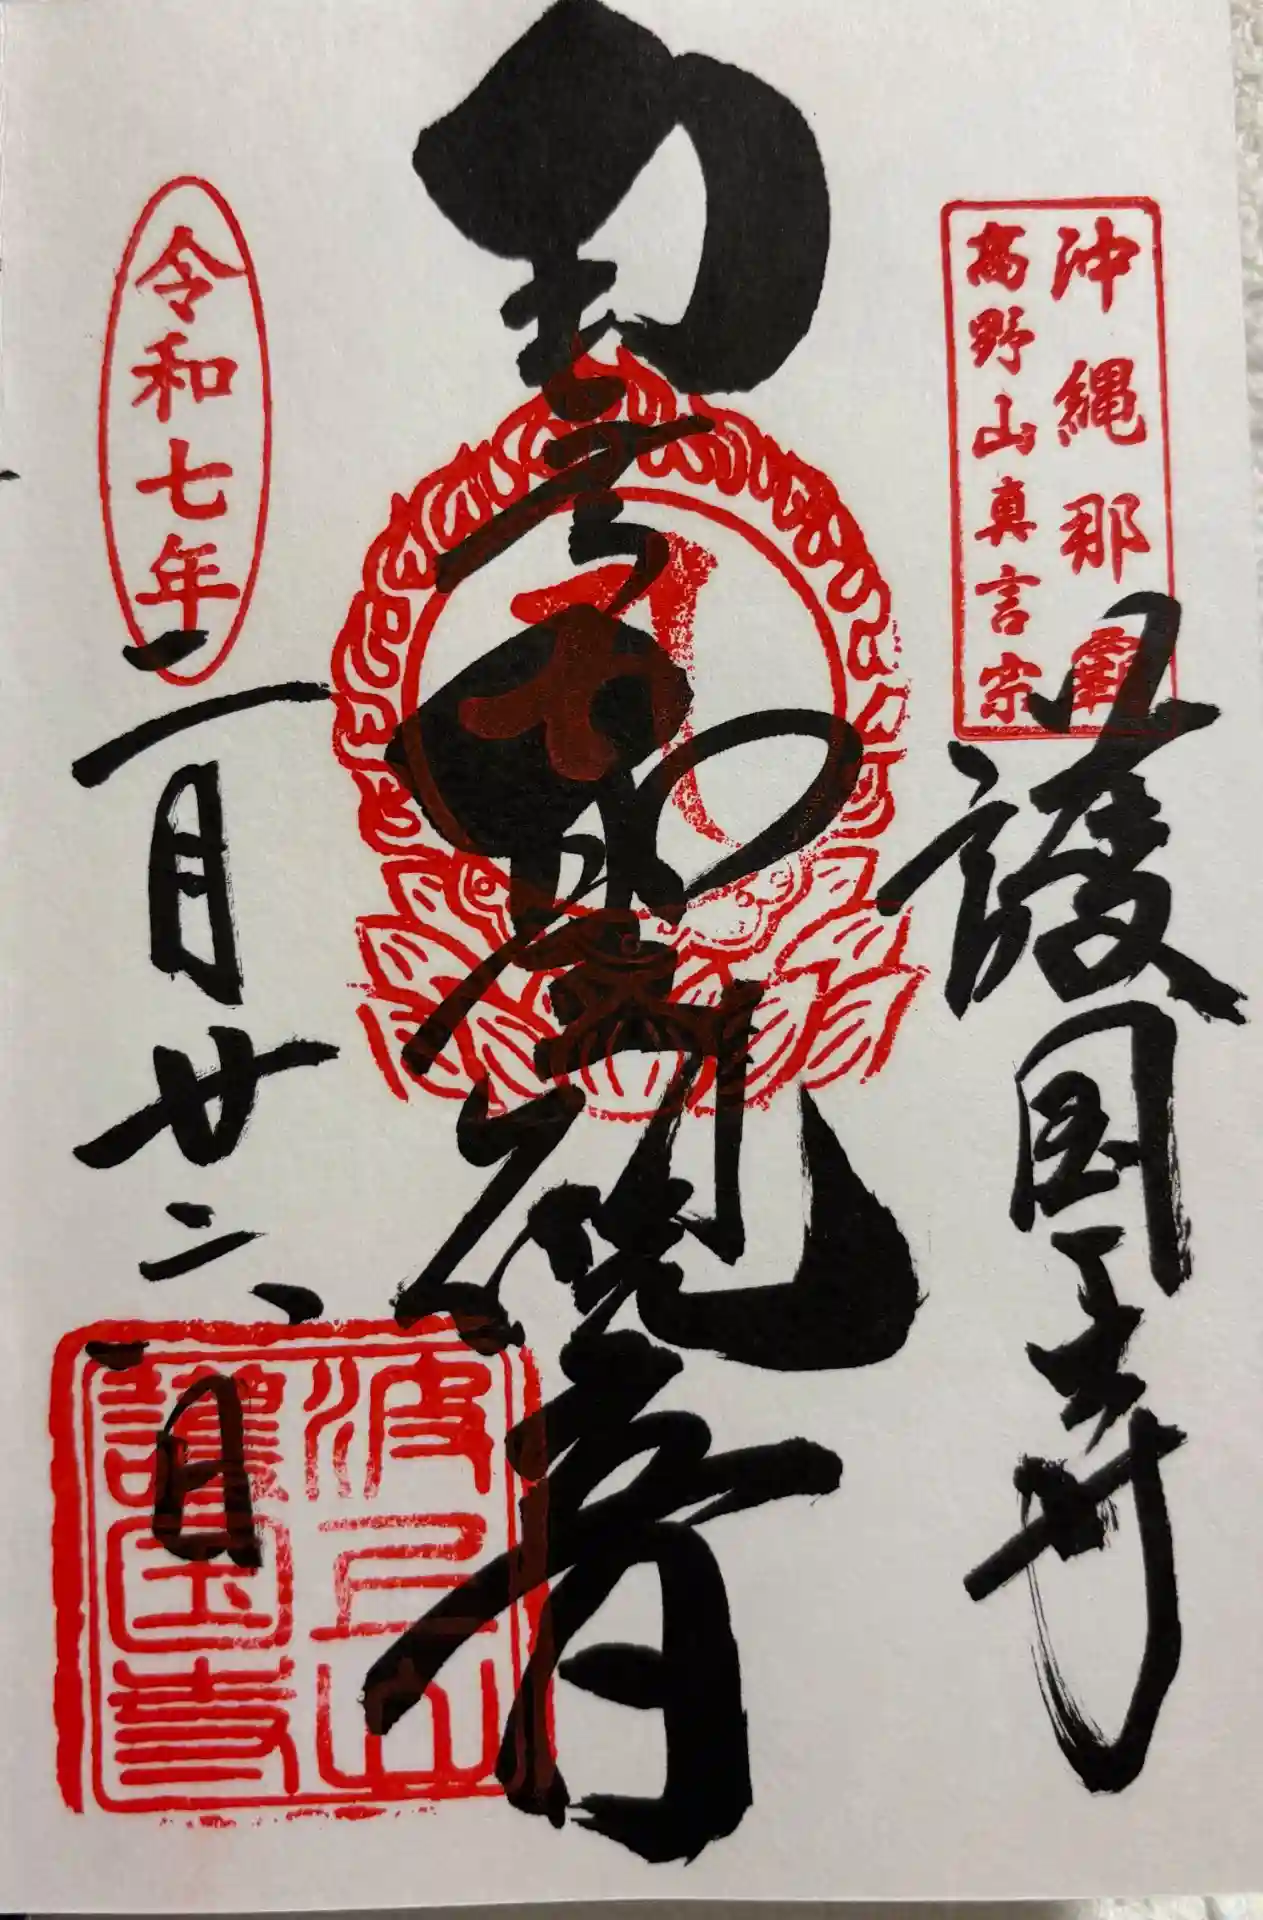 沖縄那覇
高野山真言宗
護国寺
観音
令和七年
二月廿六日
波上山
護国寺